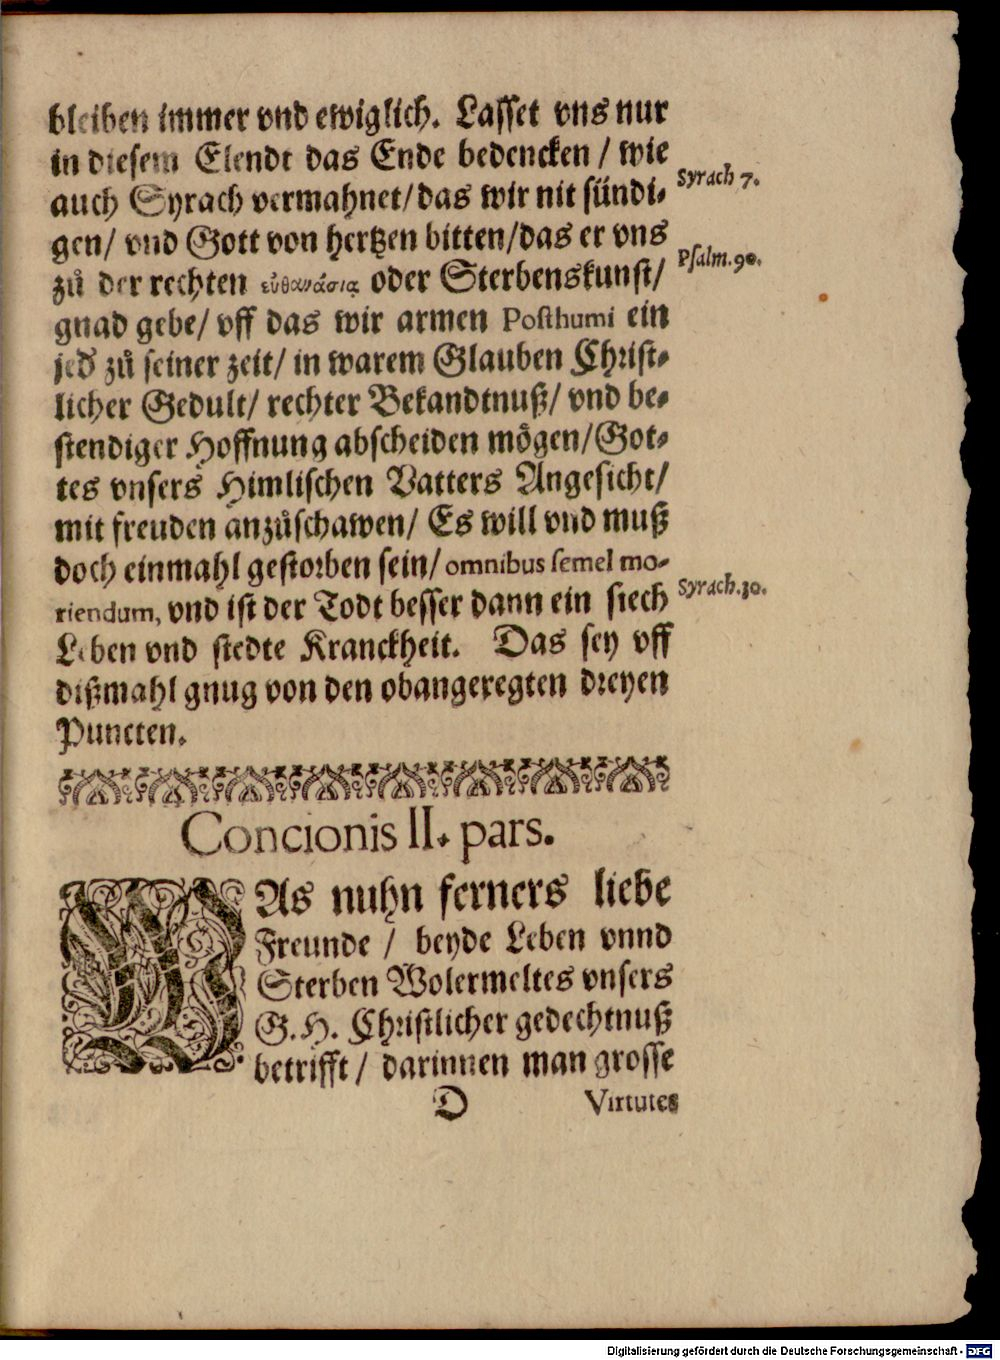 bleiben immer vnd ewiglich. Lasset vns nur
in diesem Elendt das Ende bedencken / wie
Syrach 7.
auch Syrach vermahnet/das wir nit sündi-
gen/ vnd Gott von hertzen bitten/das er vns
Psalm.90.
zů der rechten εὐθανάσια oder Sterbenskunst/
gnad gebe/ vff das wir armen Posthumi ein
jed zů seiner zeit/ in warem Glauben Christ-
licher Gedult/ rechter Bekandtnuß/ vnd be-
stendiger Hoffnung abscheiden mögen/Got-
tes vnsers Himlischen Vatters Angesicht/
mit freuden anzůschawen/ Es will vnd muß
doch einmahl gestorben sein/ omnibus semel mo-
Syrach.30.
riendum, vnd ist der Todt besser dann ein siech
Leben vnd stedte Kranckheit. Das sey vff
dißmahl gnug von den obangeregten dreyen
Puncten.
Concionis II. pars.
WAs nuhn ferners liebe
Freunde / beyde Leben vnnd
Sterben Wolermeltes vnsers
G.H. Christlicher gedechtnuß
betrifft/ darinnen man grosse
D Virtutes
Digitalisierung gefördert durch die Deutsche Forschungsgemeinschaft - DFG